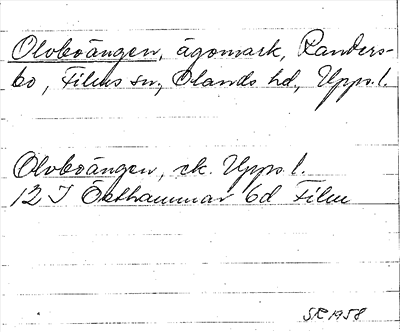 Olvboängen, ägomark, Randers-
bo, Films sn, Olands hd, Upps. l.
Olvboängen, ek. Upps. l.
12 I Östhammar 6d Film
SR 1958